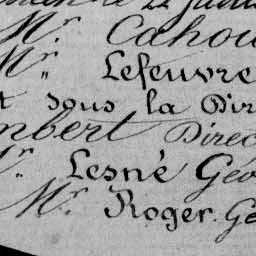 Mr. Cahou
Mr " Lefeuvre
t sous la Dir
mbert Direc
r. Lesné Géo
Mr. Roger. Gé